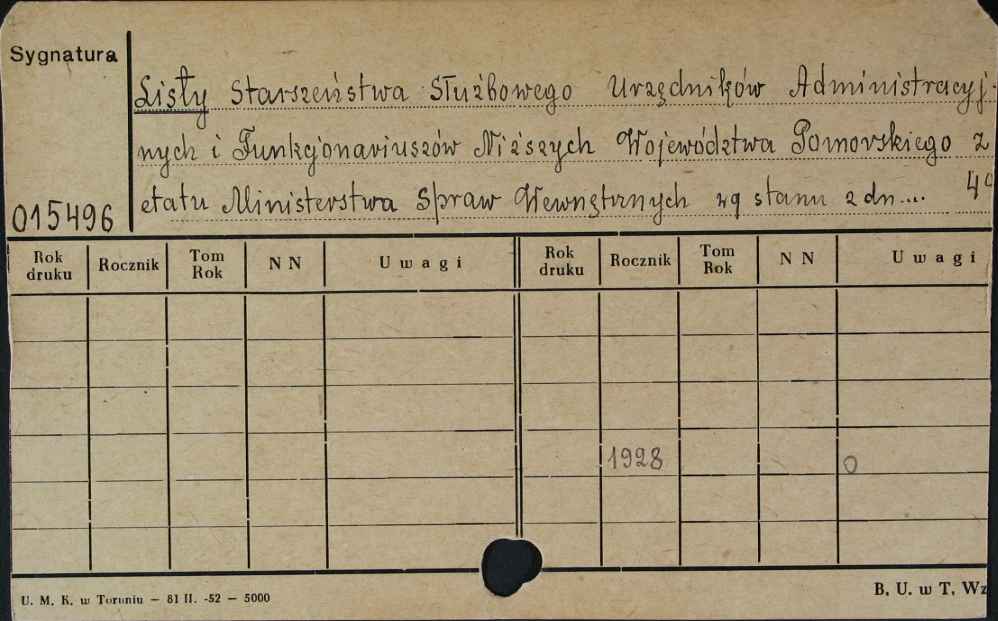 Sygnatura
Listy Starszeństwa Służbowego Urzędników Administracyj-
nych i Funkcjonariuszów Niższych Województwa Pomorskiego z
etatu Ministerstwa Spraw Wewnętrznych wg stanu z dn.... 4°
015496
Rok druku Rocznik Tom Rok N N Uwagi Rok druku Rocznik Tom Rok N N Uwagi
1928 0
U. M. K. w Toruniu — 81 II. -52 — 5000
B. U. w T. Wz